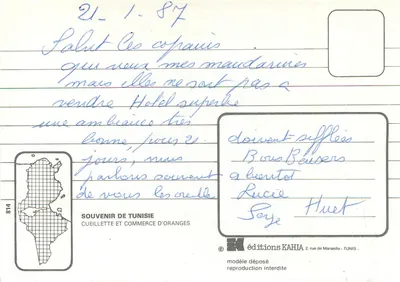 21-1.87
Salut les copains
qui veux mes mandarines
mais elles ne sont pas a
vendre Hotel superbe
une ambiance très
bonne, pour 21
jours, nous
parlons souvent
de vous les oreilles
doivent sifflées
Bons Baisers
a bientot
Lucie
Serge Huet
814
SOUVENIR DE TUNISIE
CUEILLETTE ET COMMERCE D'ORANGES
© éditions KAHIA 2, rue de Marseille - TUNIS
modèle déposé
reproduction interdite